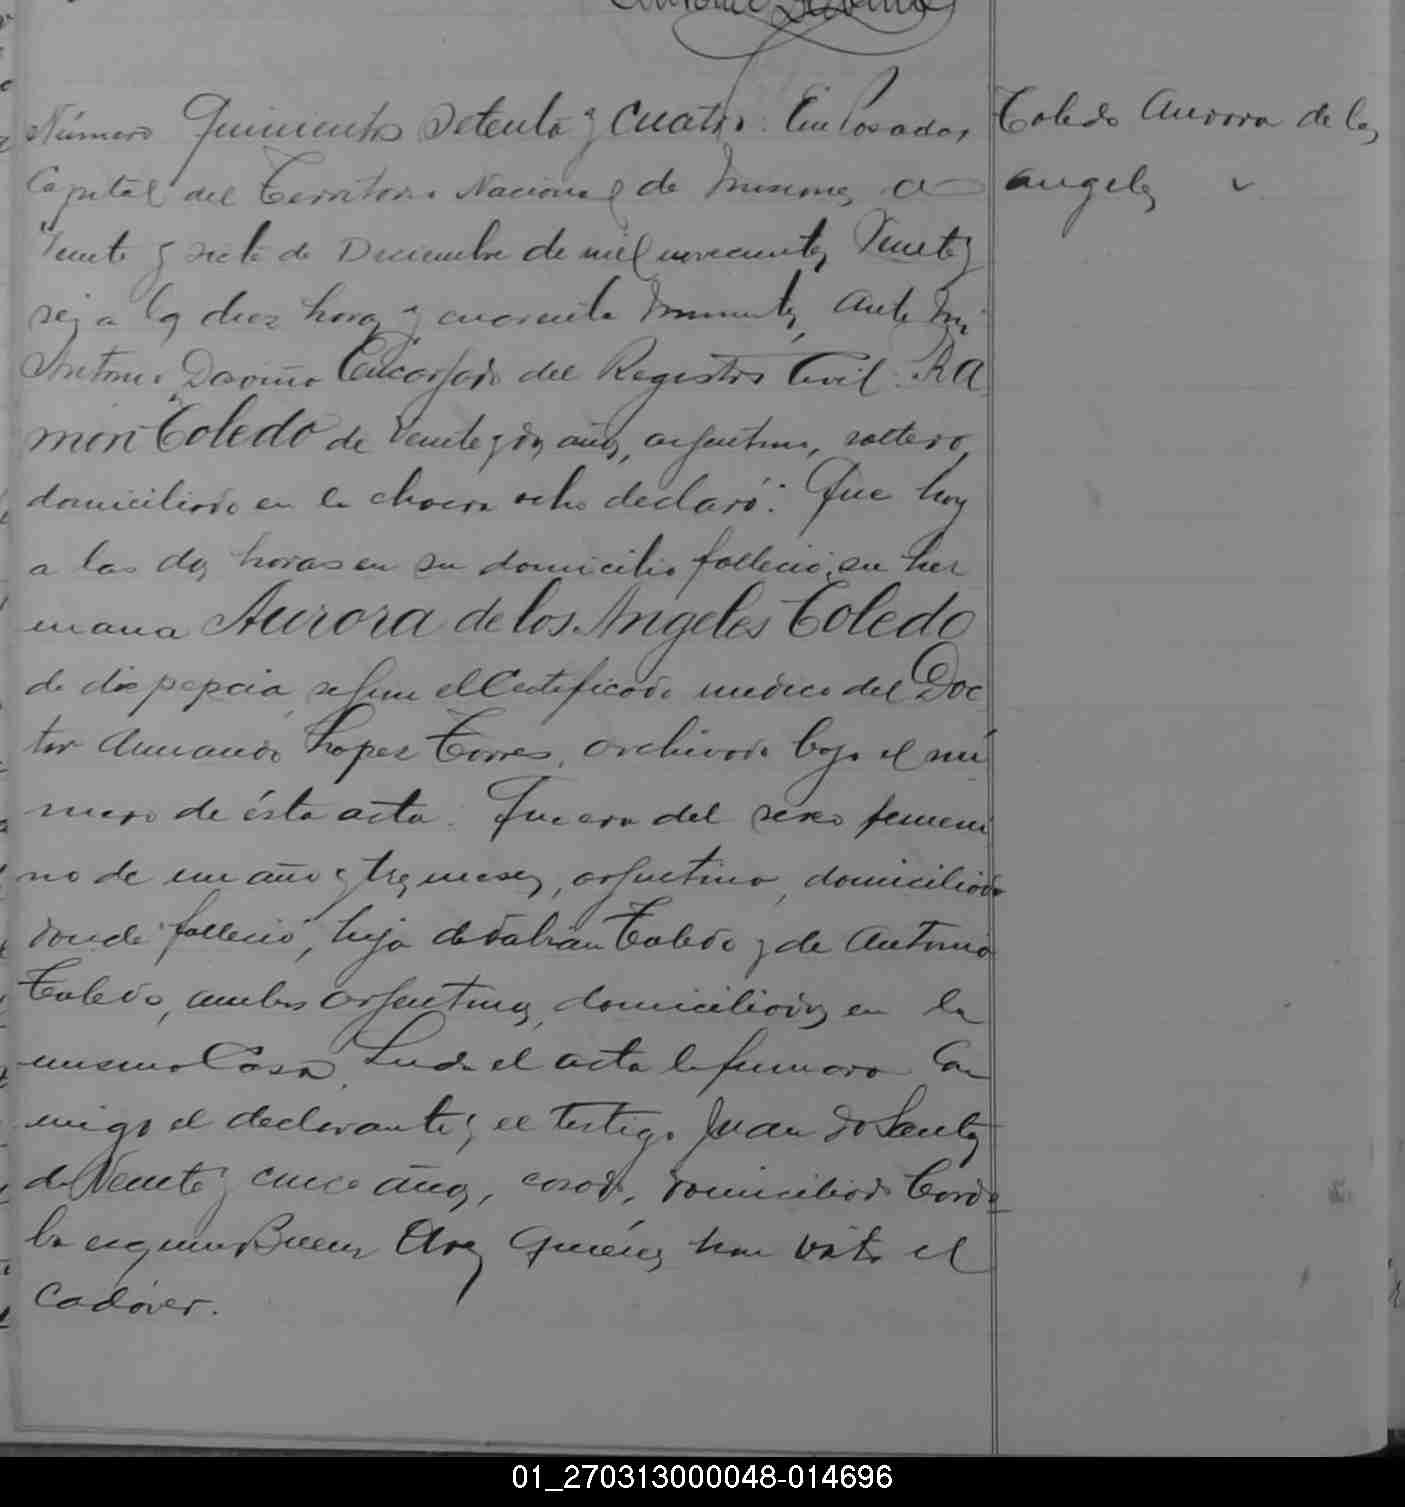 Número Quinientos Setenta y cuatro. En Posadas,
Capital del Territorio Nacional de Misiones, a
Veinte y siete de Diciembre de mil novecientos Veinte y
seis a las diez horas y cuarenta minutos, ante mi
Antonio Daviña Encargado del Registro Civil: Ra
món Toledo de Veinte y dos años, argentino, soltero,
domiciliado en la chacra ocho declaró: Que hoy
a las dos horas en su domicilio falleció su her
mana Aurora de los Angeles Toledo
de dispepcia, segun el Certificado medico del Doc
tor Armando Lopez Torres, archivado bajo el nú
mero de ésta acta. Que era del sexo femeni
no de un año y tres meses, argentina, domiciliada
donde falleció, hija de Toledo y de Antonia
Toledo, ambos argentinos, domiciliados en la
misma Casa. Leida el acta la firmaron Con
migo el declarante y el testigo Juan do Santos
de Veinte y cinco años, casado, domiciliado Cordo
ba esquina Buenos Aires Quiénes han visto el
cadáver.
Toledo Aurora de los
angeles
01_270313000048-014696